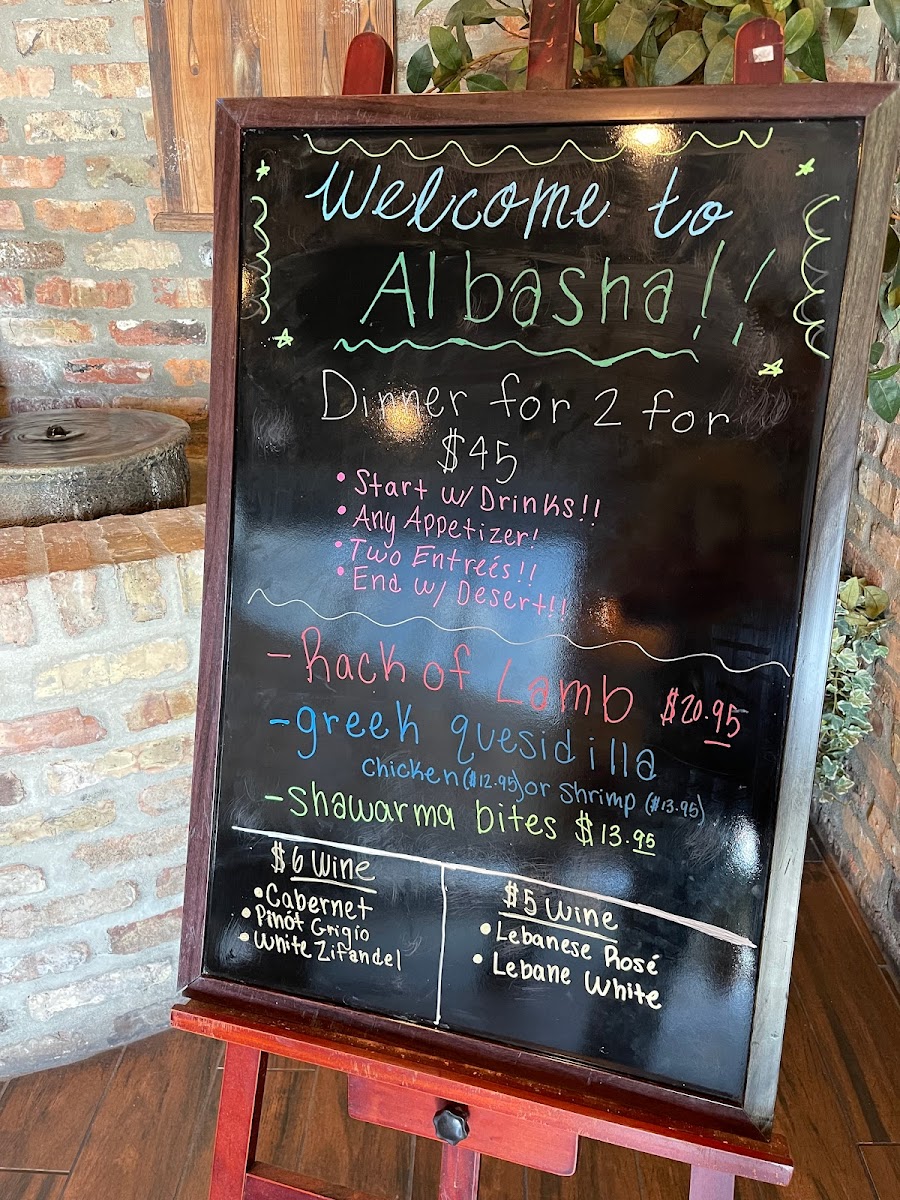 Welcome to
Albasha!!
Dinner for 2 for
$45
• Start w/ Drinks!!
• Any Appetizer!
• Two Entreés!!
• End w/ Desert!!
- Rack of Lamb $20.95
- greek quesidilla
chicken ($12.95) or shrimp ($13.95)
- shawarma bites $13.95
$6 Wine
• Cabernet
• Pinót Grigio
• White Zifandel
$5 Wine
• Lebanese Rosé
• Lebane White